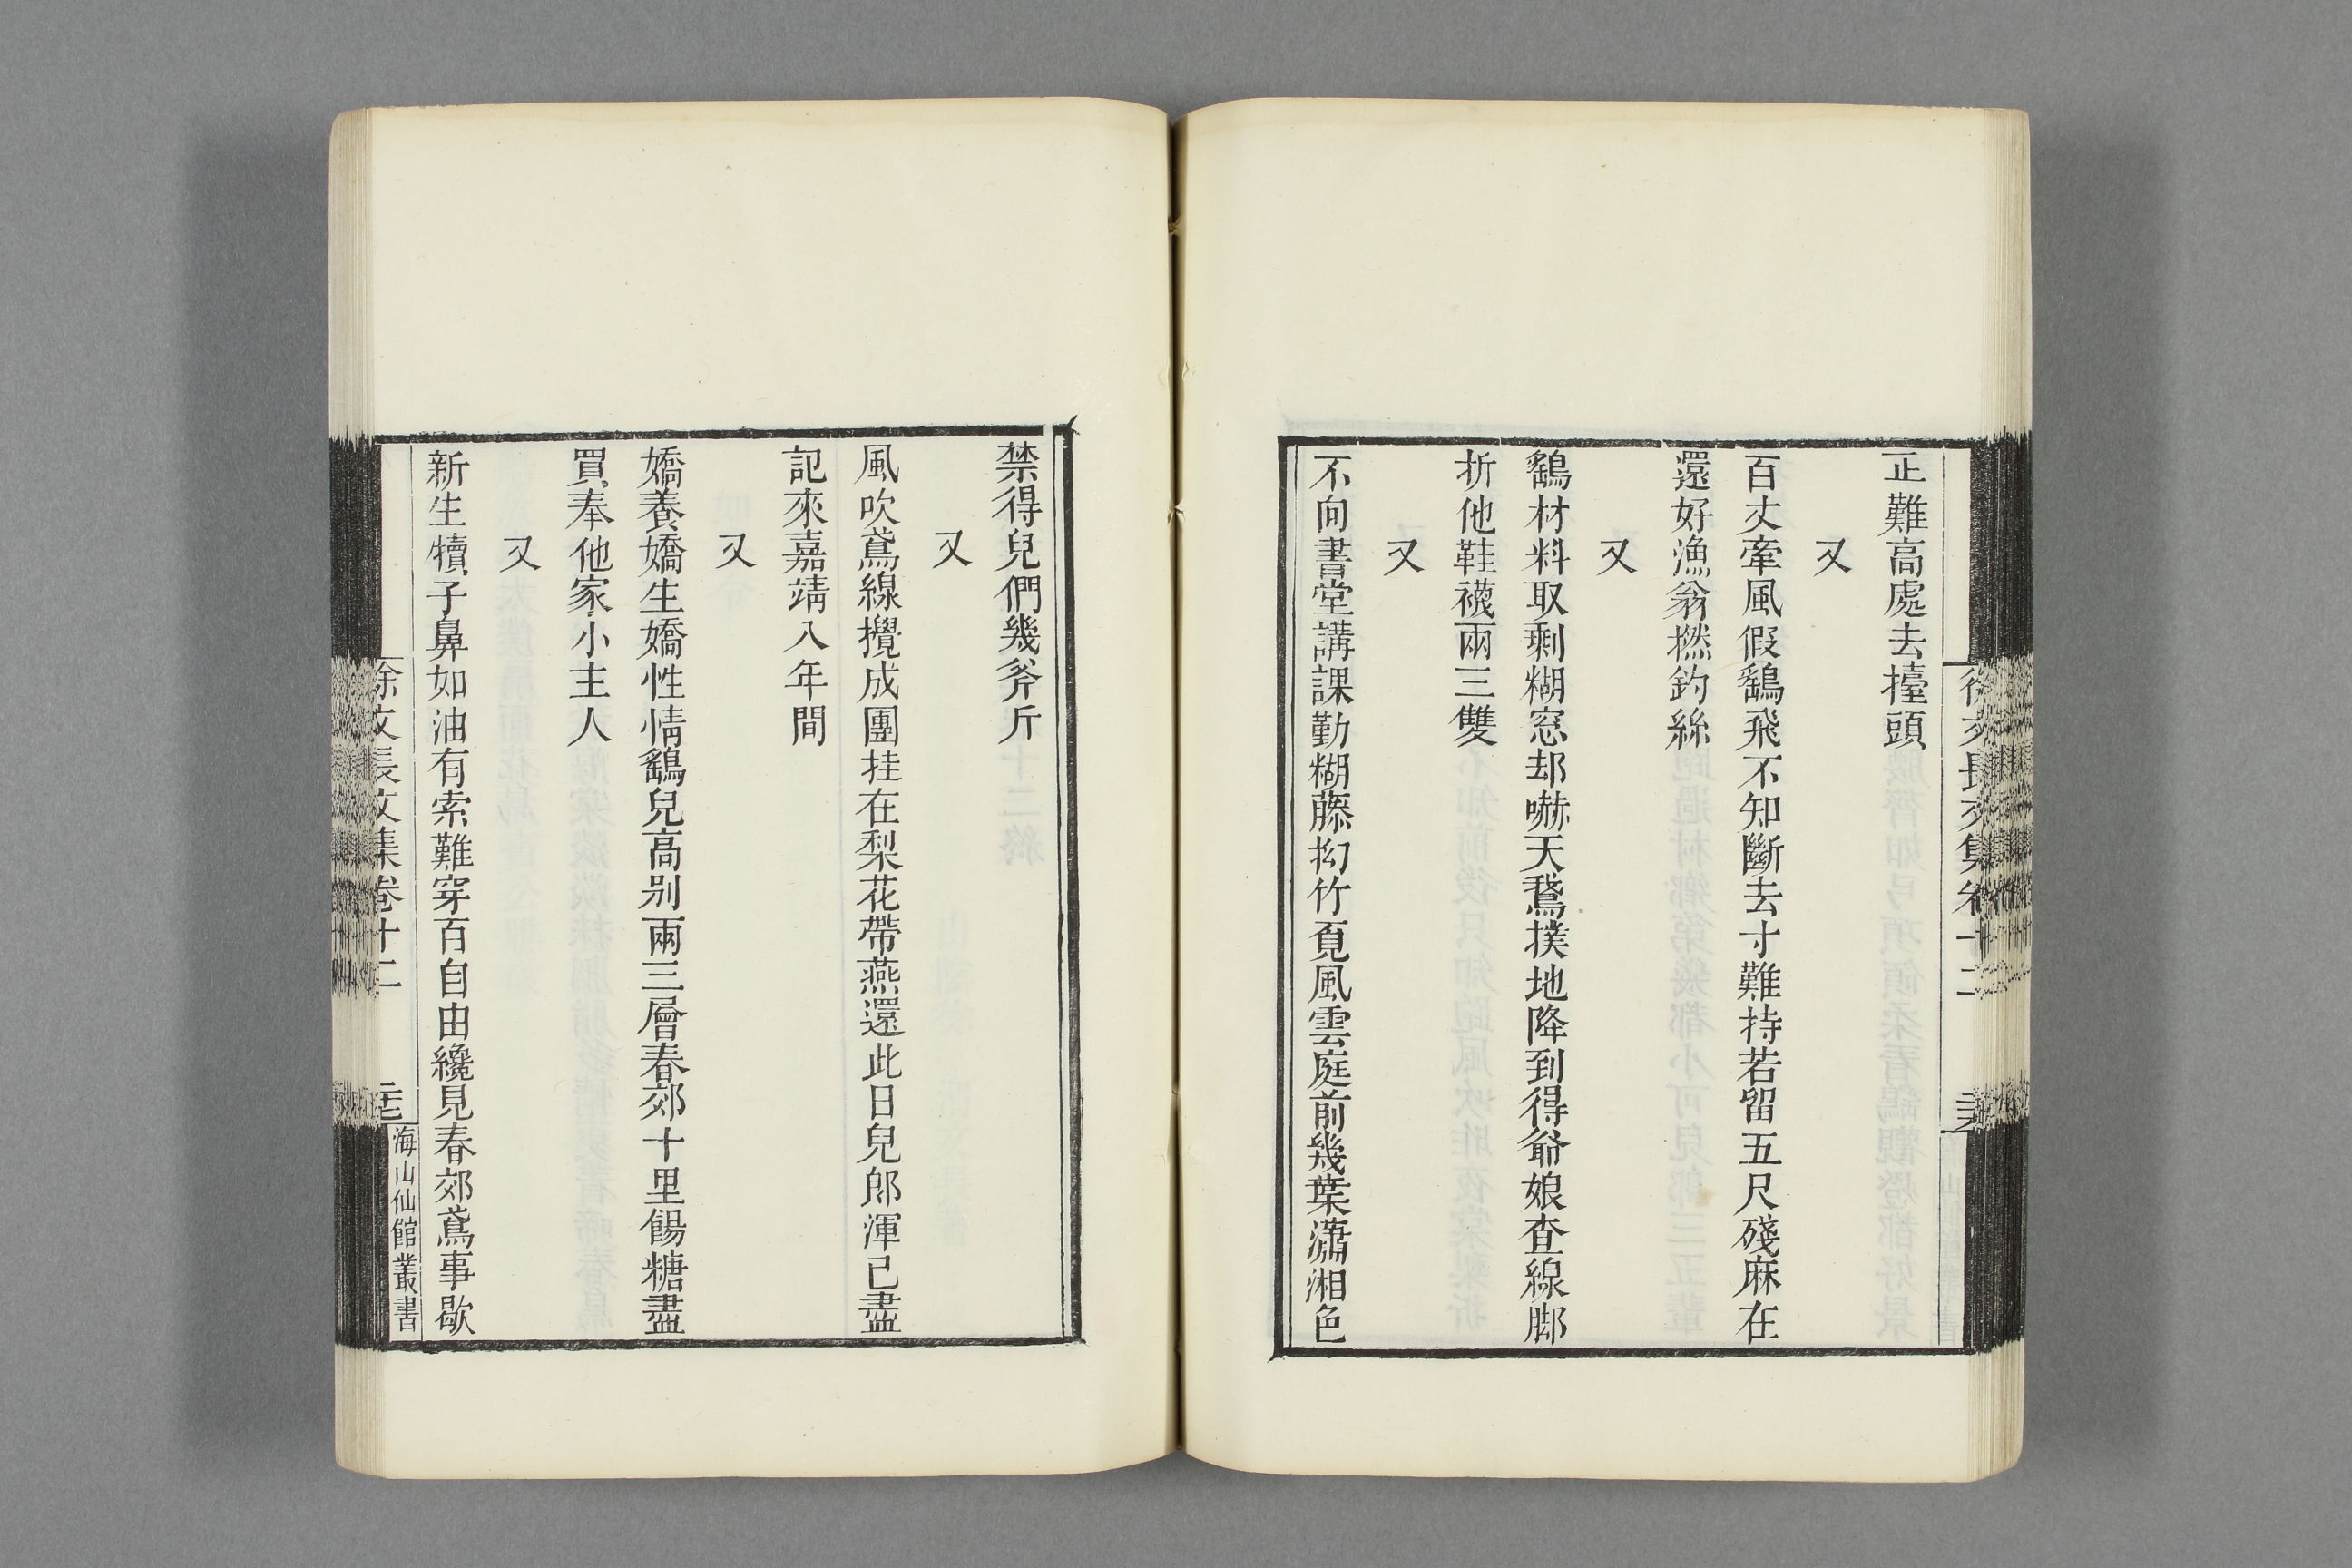 正難高處去擡頭
又
百丈牽風假鷂飛不知斷去寸難持若留五尺殘麻在
還好漁翁撚釣絲
又
鷂材料取剩糊窓却嚇天鵞撲地降到得爺娘查線脚
折他鞋襪兩三雙
又
不向書堂講課勤糊藤抝竹覔風雲庭前幾葉瀟湘色
禁得兒們幾斧斤
又
風吹鳶線攪成團挂在梨花帶燕還此日兒郎渾已盡
記來嘉靖八年間
又
嬌養嬌生嬌性情鷂兒高别兩三層春郊十里餳糖盡
買奉他家小主人
又
新生犢子鼻如油有索難穿百自由纔見春郊鳶事歇
徐文長文集卷十二
海山仙館叢書